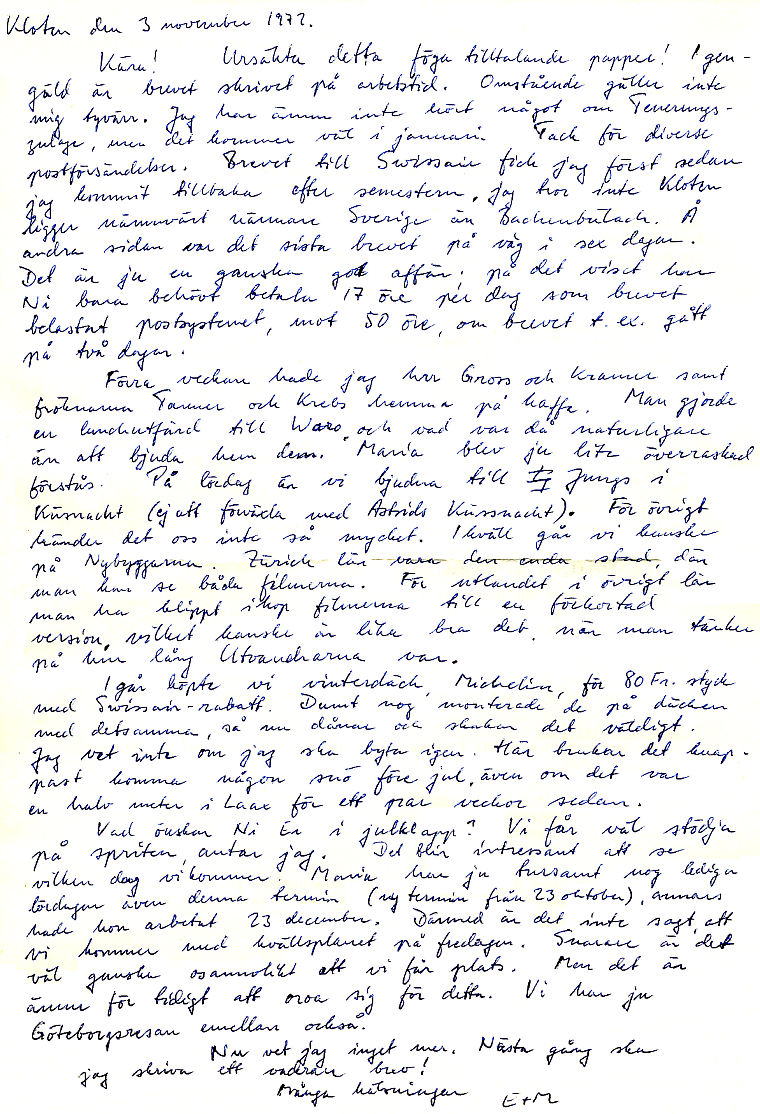 Kloten den 3 november 1972.
Kära! Ursäkta detta föga tilltalande papper! I gen-
gäld är brevet skrivet på arbetstid. Omstående gäller inte
mig tyvärr. Jag har ännu inte hört något om Teuerungs-
zulage, men det kommer väl i januari. Tack för diverse
postförsändelser. Brevet till Swissair fick jag först sedan
jag kommit tillbaka efter semestern, jag tror inte Kloten
ligger nämnvärt närmare Sverige än Bachenbülach. Å
andra sidan var det sista brevet på väg i sex dagar.
Det är ju en ganska god affär. på det viset har
Ni bara behövt betala 17 öre per dag som brevet
belastat postsystemet, mot 50 öre, om brevet t.ex. gått
på två dagar.
Förra veckan hade jag herr Gross och Kramer samt
fröknarna Tanner och Krebs hemma på kaffe. Man gjorde
en lunchutfärd till Waro och vad var då naturligare
än att bjuda hem dem. Maria blev ju lite överraskad
förstås. På lördag är vi bjudna till Jungs i
Küsnacht (ej att förväxla med Astrids Küssnacht). För övrigt
händer det oss inte så mycket. I kväll går vi kanske
på Nybyggarna. Zürich lär vara den enda stad, där
man kan se båda filmerna. För utlandet i övrigt lär
man ha klippt ihop filmerna till en förkortad
version, vilket kanske är lika bra det, när man tänker
på hur lång Utvandrarna var.
I går köpte vi vinterdäck, Michelin, för 80 Fr. styck
med Swissair-rabatt. Dumt nog monterade de på däcken
med detsamma, så nu dånar och skakar det väldigt.
Jag vet inte om jag ska byta igen. Här brukar det knap-
past komma någon snö före jul, även om det var
en halv meter i Laax för ett par veckor sedan.
Vad önskar Ni Er i julklapp? Vi får väl stödja
på spriten, antar jag. Det blir intressant att se
vilken dag vi kommer. Maria har ju tursamt nog lediga
lördagar även denna termin (ny termin från 23 oktober), annars
hade hon arbetat 23 december. Därmed är det inte sagt att
vi kommer med kvällsplanet på fredagen. Snarare är det
väl ganska osannolikt att vi får plats. Men det är
ännu för tidigt att oroa sig för detta. Vi har ju
Göteborgsresan emellan också.
Nu vet jag inget mer. Nästa gång ska
jag skriva ett vackrare brev!
Många hälsningar E+M